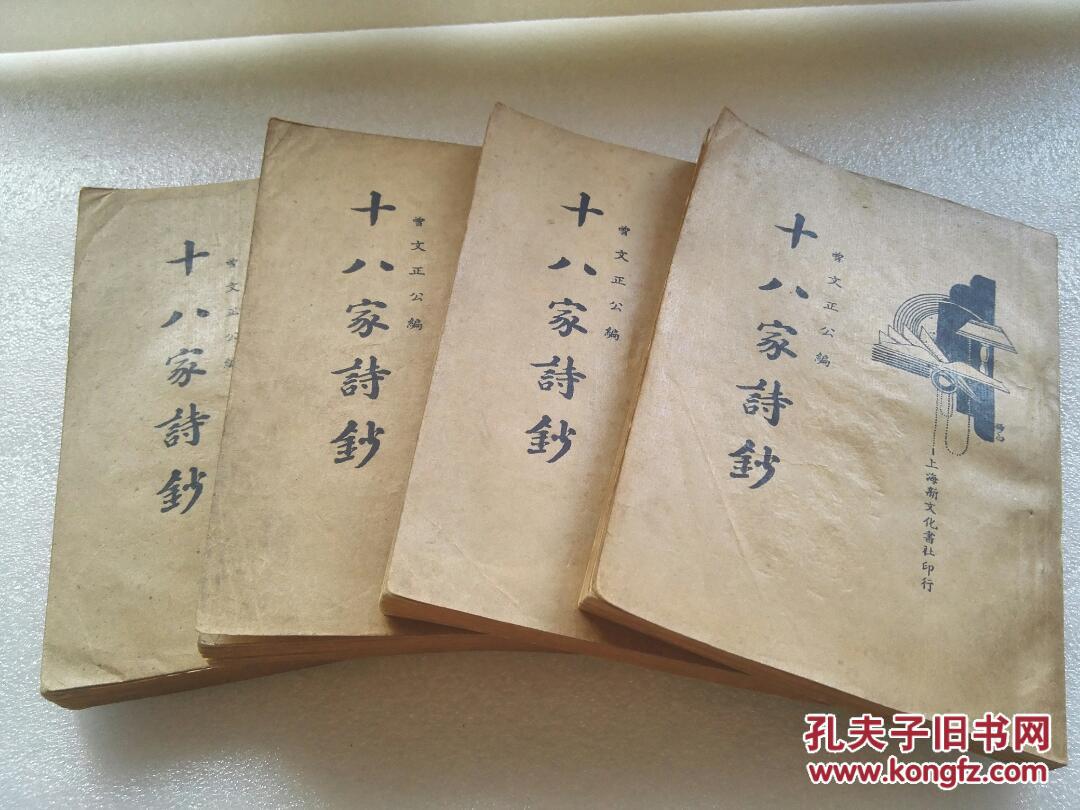 十八家詩鈔
曾文正公編
十八家詩鈔
曾文正公編
十八家詩鈔
曾文正公編
十八家詩鈔
曾文正公編
上海新文化書社印行
孔夫子旧书网
www.kongfz.com